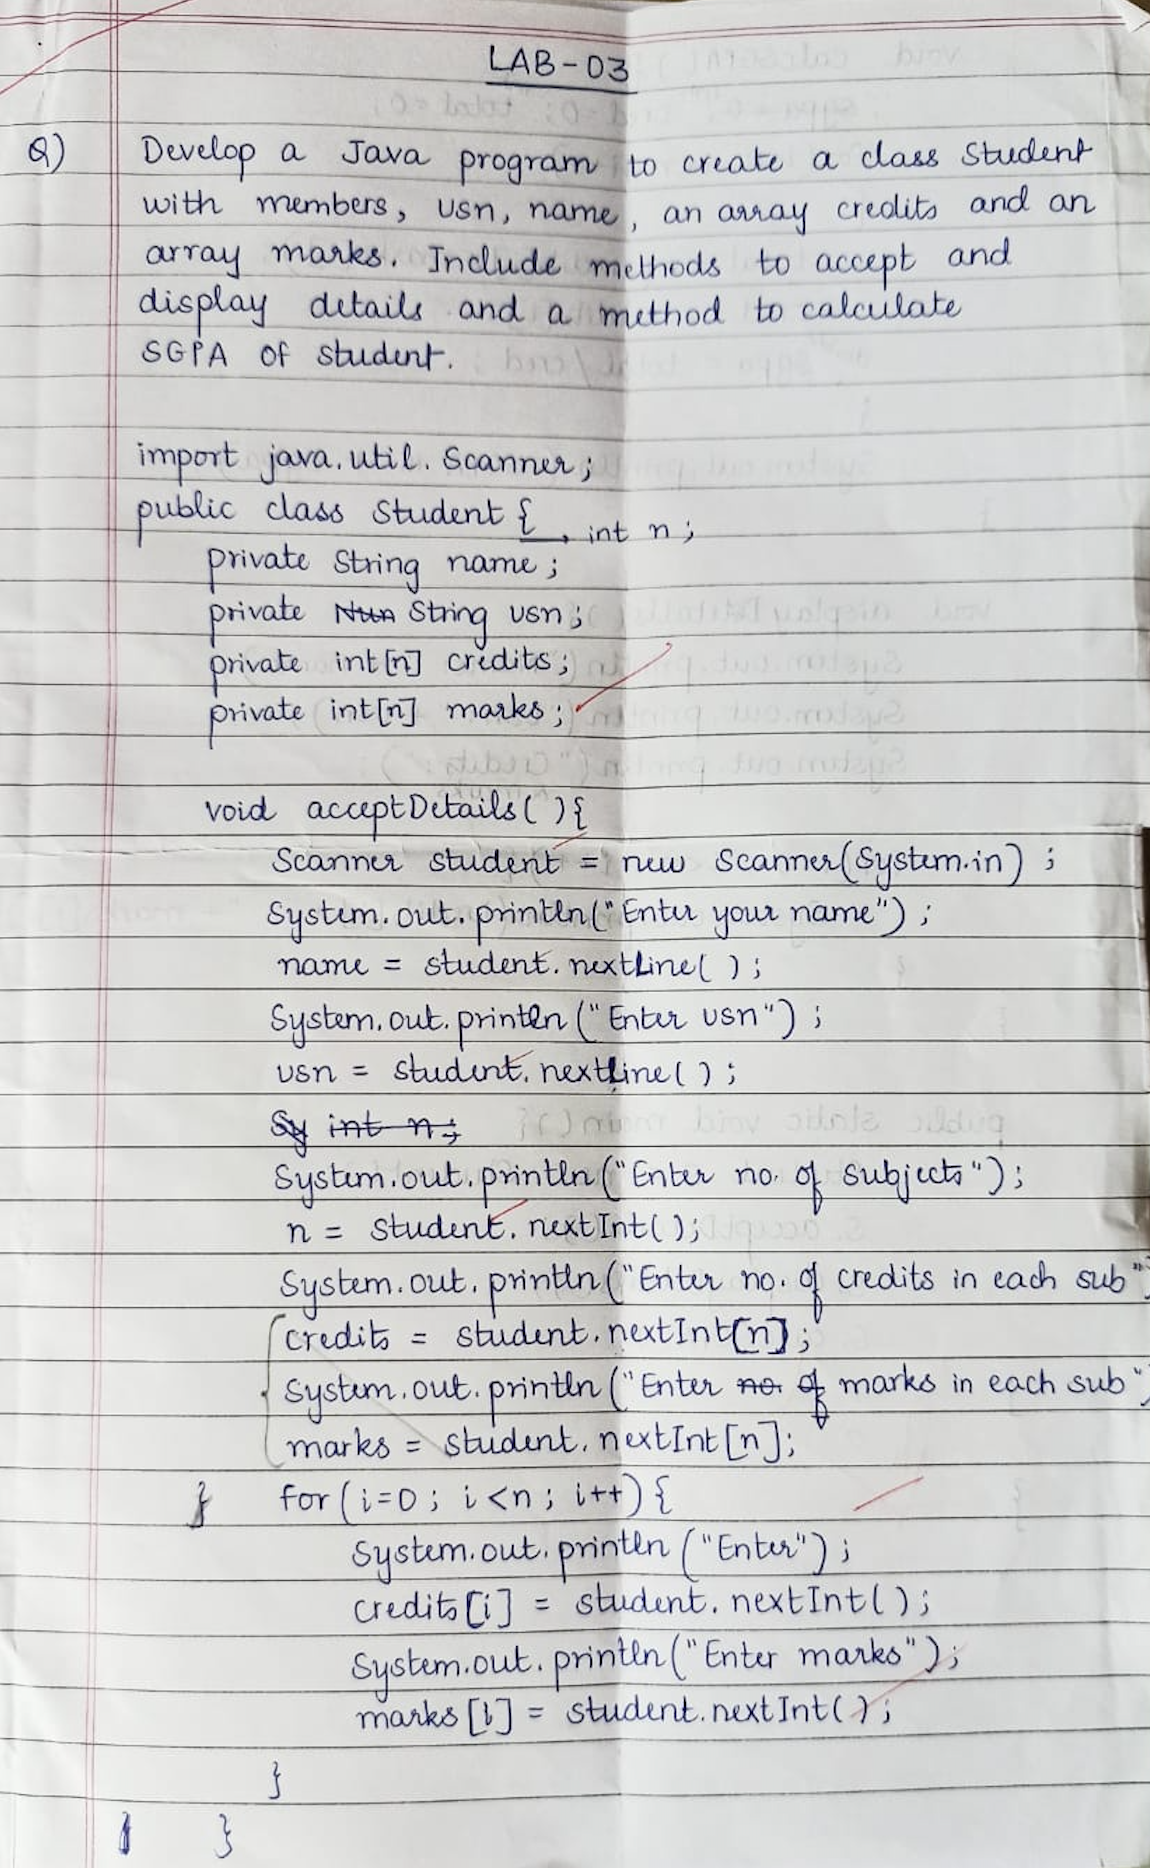 LAB-03
Q) Develop a Java program to create a class Student
with members, usn, name, an array credits and an
array marks. Include methods to accept and
display details and a method to calculate
SGPA of student.
import java.util.Scanner;
public class Student {
int n;
private String name;
private Nun String usn;
private int[n] credits;
private int[n] marks;
void acceptDetails( ){
Scanner student = new Scanner(System.in) ;
System.out.println("Enter your name") ;
name = student.nextLine( ) ;
System.out.println("Enter usn") ;
usn = student.nextLine( ) ;
Sy int n;
System.out.println("Enter no. of subjects");
n = student.nextInt( );
System.out.println("Enter no. of credits in each sub"
credits = student.nextInt[n];
System.out.println("Enter no. of marks in each sub"
marks = student.nextInt[n];
} for(i=0 ; i<n ; i++) {
System.out.println ("Enter") ;
credits[i] = student.nextInt( ) ;
System.out.println("Enter marks");
marks[i] = student.nextInt( ) ;
}
}